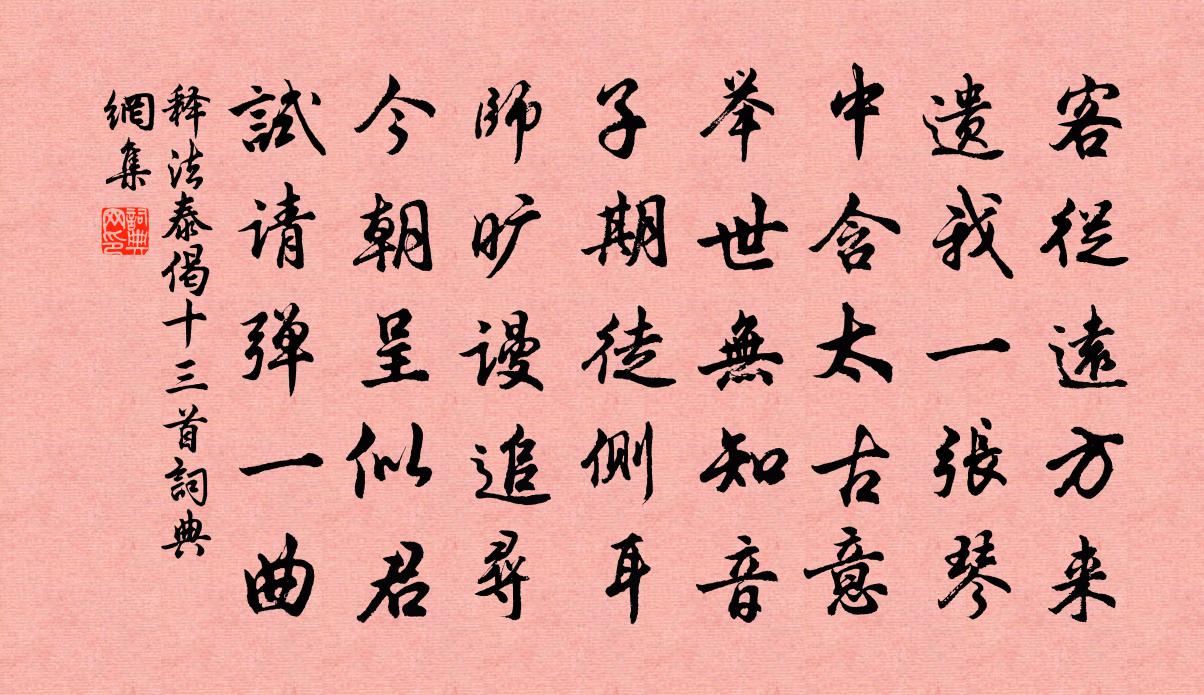 客從遠方来
遺我一張琴
中含太古意
举世無知音
子期徒側耳
師旷謾追尋
今朝呈似君
試请弹一曲
释法泰偈十三首詞典
網集
詞典
网印